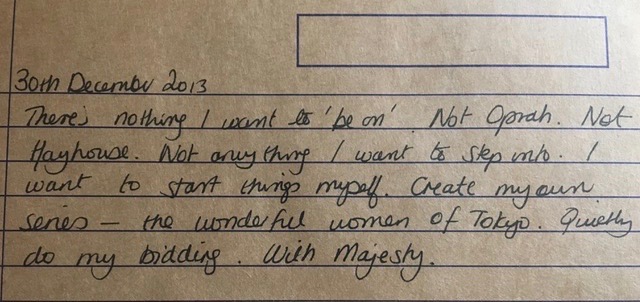 30th December 2013
There's nothing I want to 'be on'. Not Oprah. Not
Hayhouse. Not anything I want to step into. I
want to start things myself. Create my own
series – the wonderful women of Tokyo. Quietly
do my bidding. With Majesty.